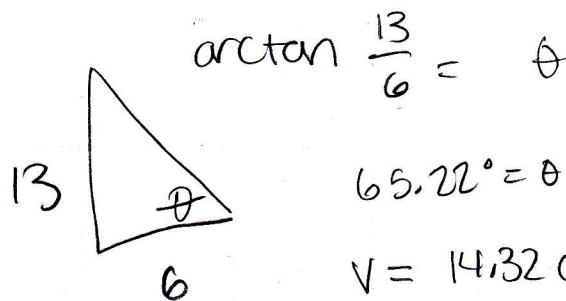 arctan 13/6 = θ
13
θ
65.22° = θ
6
V = 14.32 (